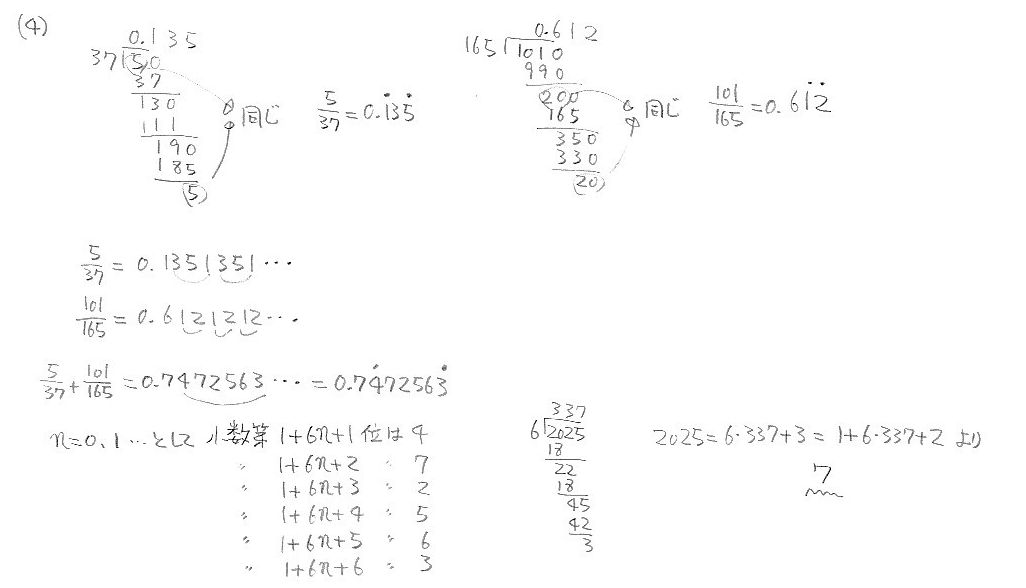 (4)
0.135
37)50
37
130
111
190
185
5
同じ
5/37=0.1̇35̇
0.612
165)1010
990
200
165
350
330
20
同じ
101/165=0.61̇2̇
5/37=0.1351351…
101/165=0.6121212…
5/37+101/165=0.7472563…=0.74̇72563̇
n=0,1…として 小数第1+6n+1位は4
〃 1+6n+2 〃 7
〃 1+6n+3 〃 2
〃 1+6n+4 〃 5
〃 1+6n+5 〃 6
〃 1+6n+6 〃 3
337
6)2025
18
22
18
45
42
3
2025=6・337+3=1+6・337+2より
7